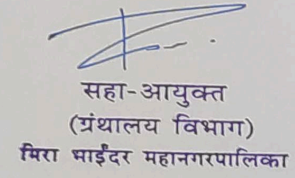 सहा-आयुक्त
(ग्रंथालय विभाग)
मिरा भाईंदर महानगरपालिका